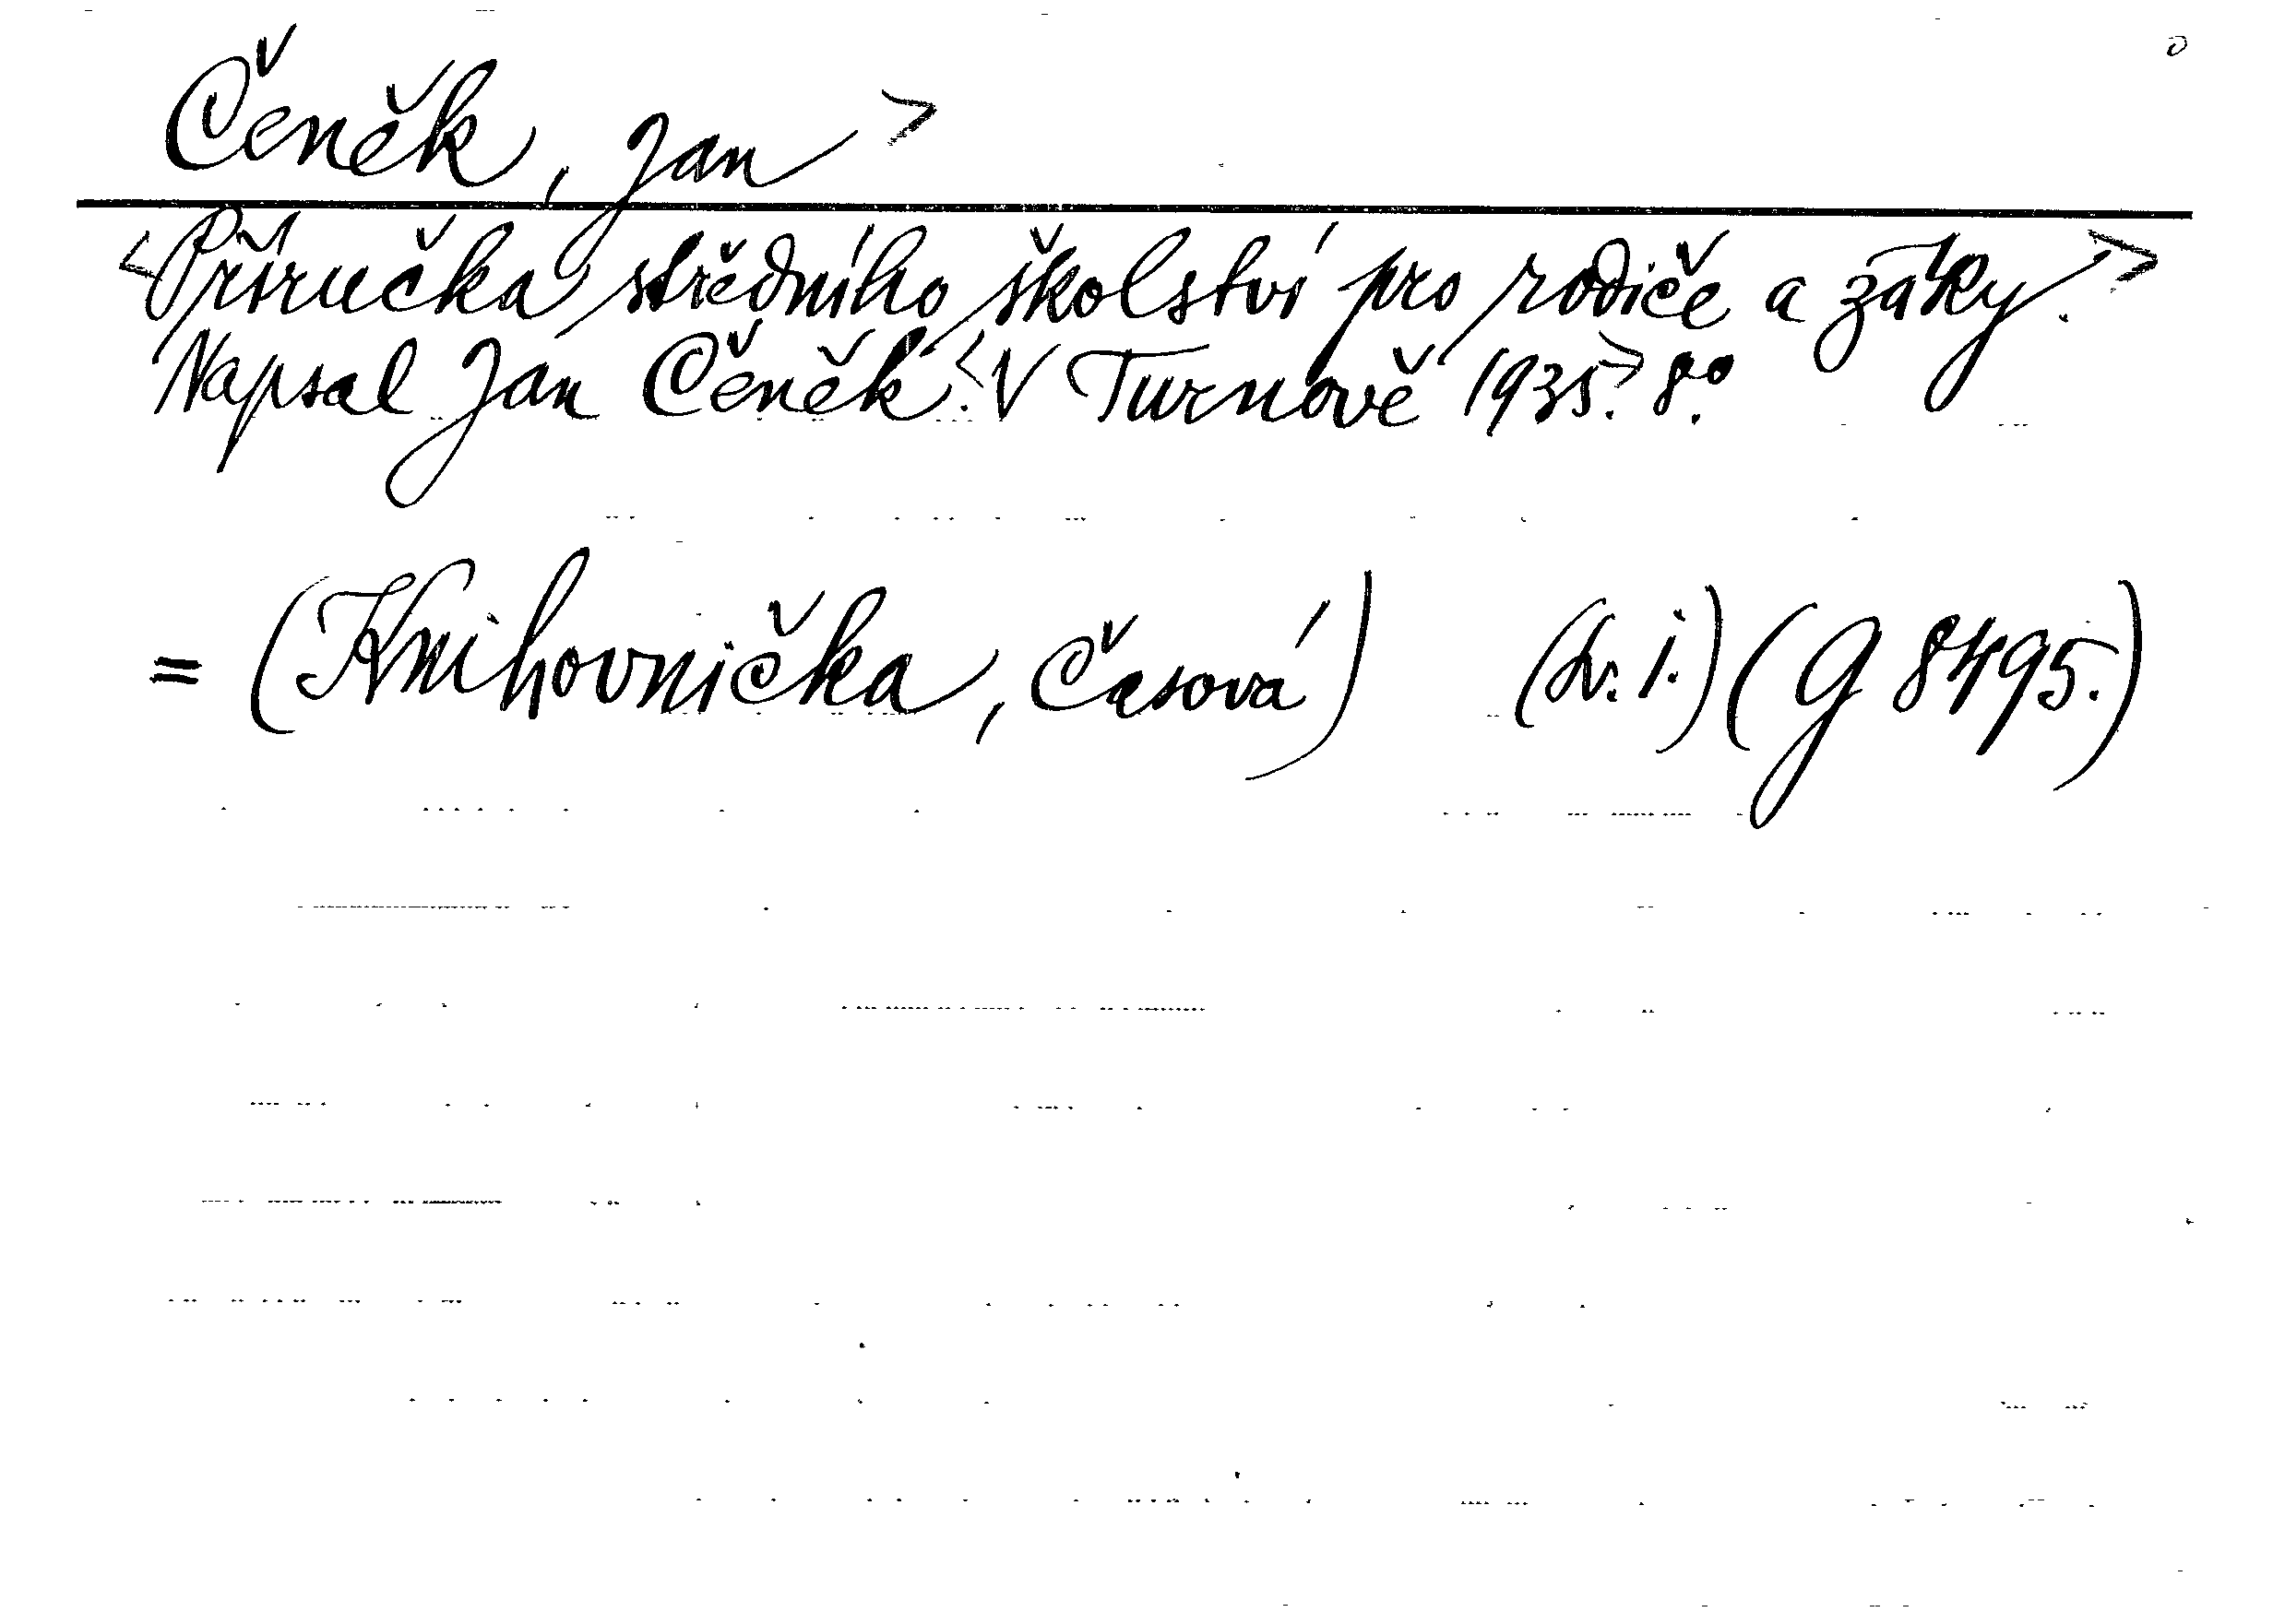 Čeněk, Jan >
<Příručka středního školství pro rodiče a žáky.>
Napsal Jan Čeněk. <V Turnově 1935.> 8.°
= (Knihovnička, Časová) (Sv. 1.) (G 8495.)